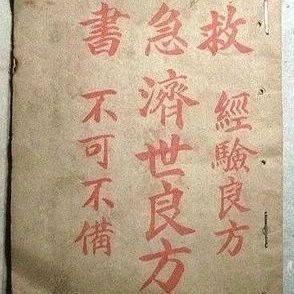 救急書
經驗良方
濟世良方
不可不備